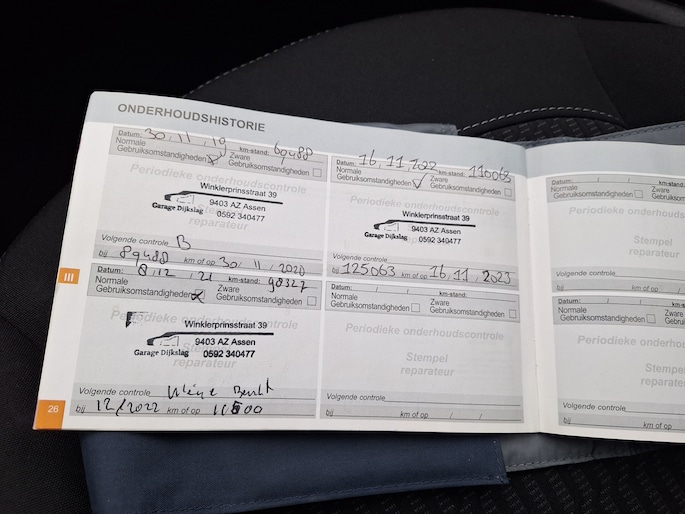 ONDERHOUDSHISTORIE
Datum: 30, 11, 19 km-stand: 69488
Normale Gebruiksomstandigheden Zware Gebruiksomstandigheden
Periodieke onderhoudscontrole
Winklerprinsstraat 39
9403 AZ Assen
Garage Dijkslag 0592 340477
Stempel
reparateur
Volgende controle B
bij 89488 km of op 30, 11, 2020
Datum: 8, 12, 21 km-stand: 98327
Normale Gebruiksomstandigheden Zware Gebruiksomstandigheden
Periodieke onderhoudscontrole
Winklerprinsstraat 39
9403 AZ Assen
Garage Dijkslag 0592 340477
Stempel
reparateur
Volgende controle
bij 12/2022 km of op
Datum: 16, 11, 2022 km-stand: 110063
Normale Gebruiksomstandigheden Zware Gebruiksomstandigheden
Periodieke onderhoudscontrole
Winklerprinsstraat 39
9403 AZ Assen
Garage Dijkslag 0592 340477
Stempel
reparateur
Volgende controle
bij 125063 km of op 16, 11, 2023
Datum: / / km-stand:
Normale Gebruiksomstandigheden Zware Gebruiksomstandigheden
Periodieke onderhoudscontrole
Stempel
reparateur
Volgende controle
bij km of op / /
Datum: / / km-stand:
Normale Gebruiksomstandigheden Zware Gebruiksom
Periodieke onderhoud
Stempel
reparateur
Volgende controle
bij km of op
Datum: / / km-stand:
Normale Gebruiksomstandigheden Zware Gebruiksom
Periodieke onderho
Stem
repara
Volgende controle
bij km of op
III
26